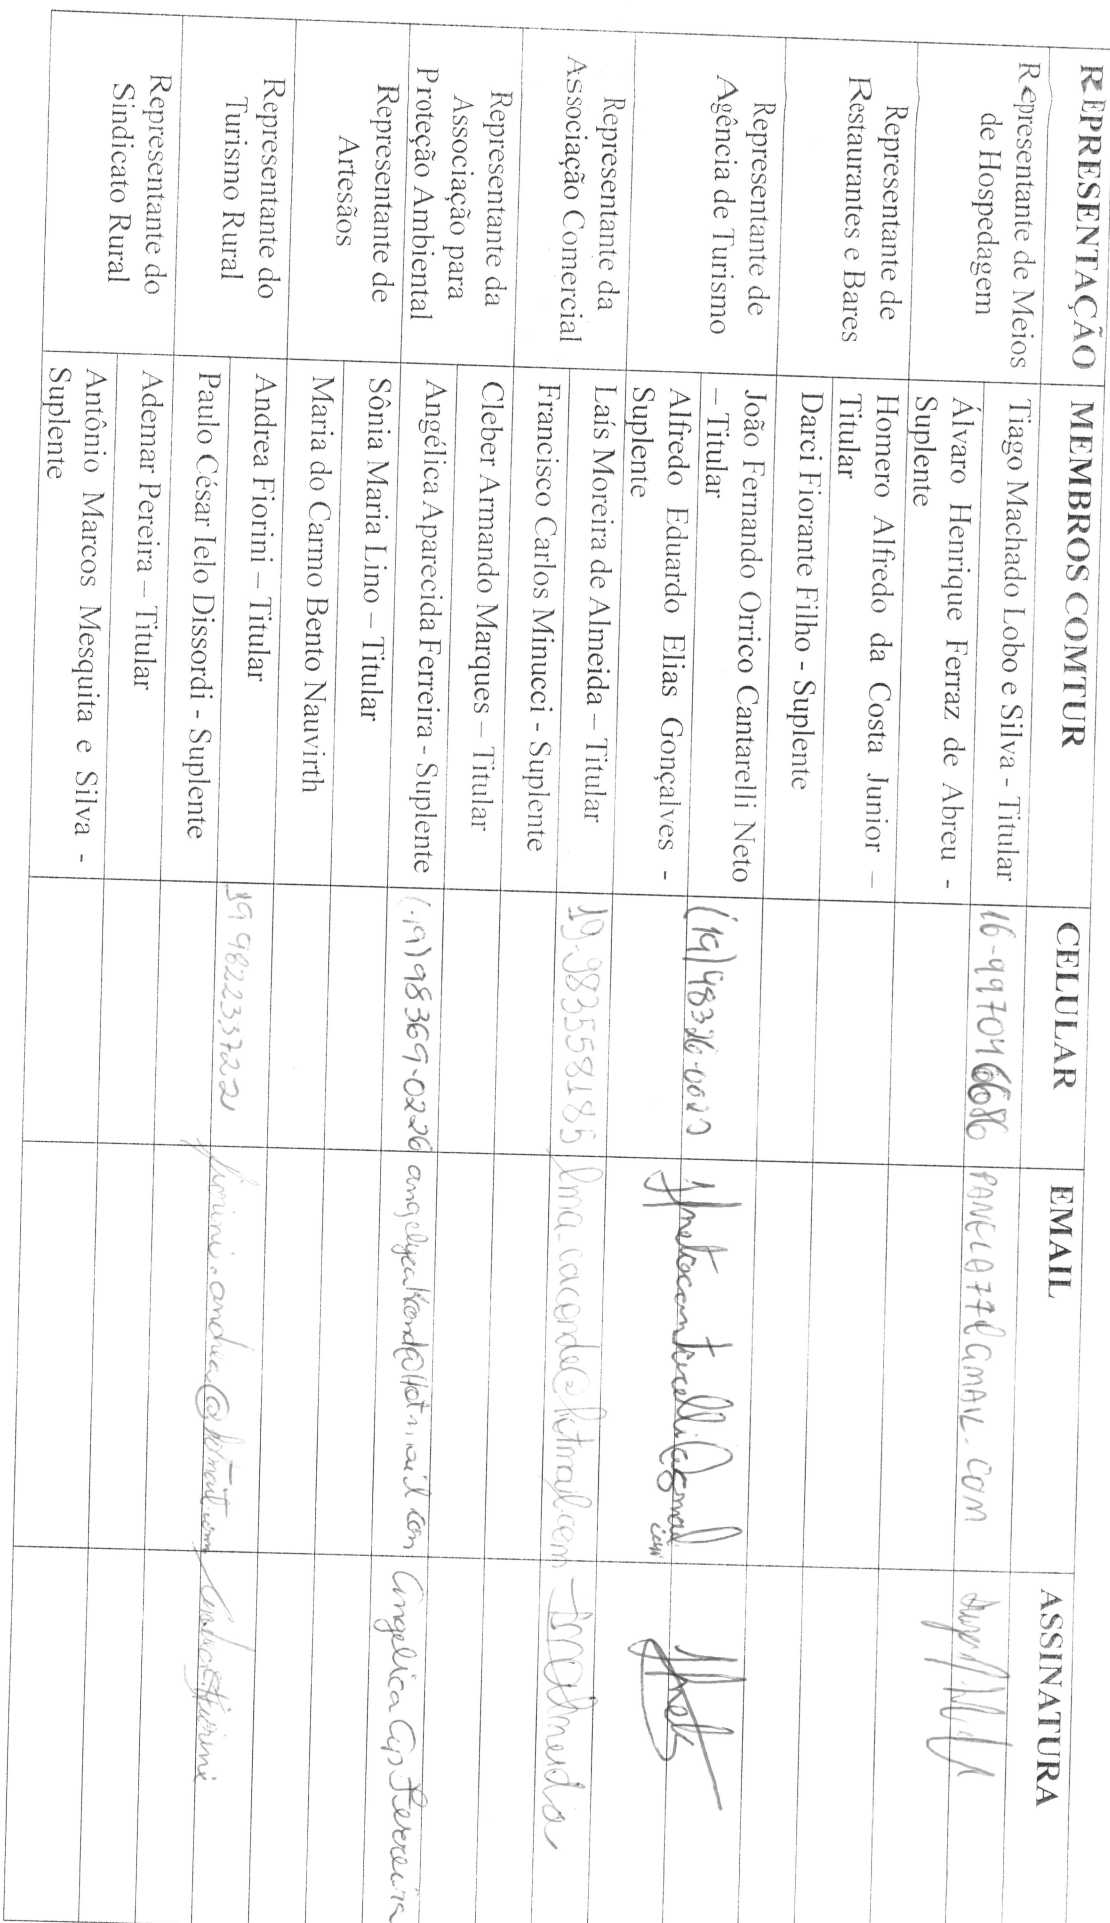 REPRESENTAÇÃO MEMBROS COMTUR CELULAR EMAIL ASSINATURA
Representante de Meios
de Hospedagem
Tiago Machado Lobo e Silva - Titular 16-997046686 PANELA77@GMAIL.COM
Álvaro Henrique Ferraz de Abreu -
Suplente
Representante de
Restaurantes e Bares
Homero Alfredo da Costa Junior –
Titular
Darci Fiorante Filho - Suplente
Representante de
Agência de Turismo
João Fernando Orrico Cantarelli Neto
– Titular
Alfredo Eduardo Elias Gonçalves -
Suplente
Representante da
Associação Comercial
Laís Moreira de Almeida – Titular 19-983558185 lma_caconde@hotmail.com
Francisco Carlos Minucci - Suplente
Representante da
Associação para
Proteção Ambiental
Cleber Armando Marques – Titular
Angélica Aparecida Ferreira - Suplente (19) 98369-0226 Angelica Ap Ferreira
Representante de
Artesãos
Sônia Maria Lino – Titular
Maria do Carmo Bento Nauvirth
Representante do
Turismo Rural
Andrea Fiorini – Titular 19982233722 fiorini.andrea@hotmail.com Andrea Fiorini
Paulo César Ielo Dissordi - Suplente
Representante do
Sindicato Rural
Ademar Pereira – Titular
Antônio Marcos Mesquita e Silva -
Suplente